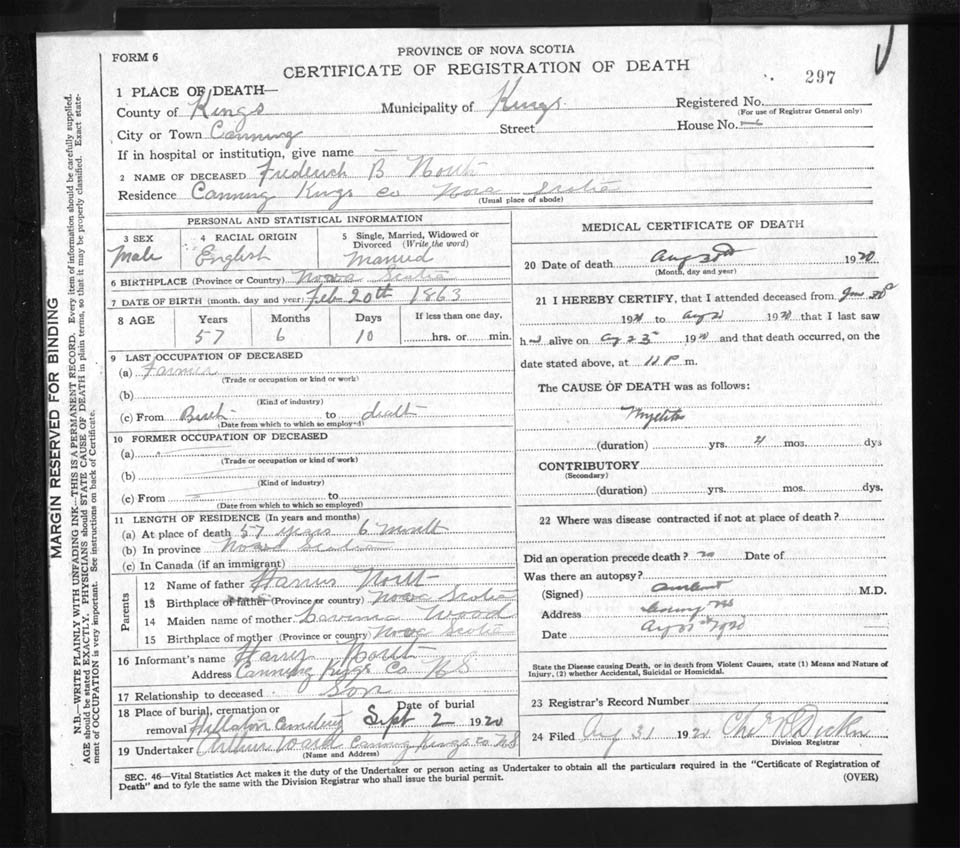 PROVINCE OF NOVA SCOTIA
FORM 6
CERTIFICATE OF REGISTRATION OF DEATH
297
1 PLACE OF DEATH—
County of Kings Municipality of Kings. Registered No.
(For use of Registrar General only)
City or Town Canning Street House No.
If in hospital or institution, give name —
2 NAME OF DECEASED Frederick B North
Residence Canning Kings Co Nova Scotia
(Usual place of abode)
PERSONAL AND STATISTICAL INFORMATION
3 SEX 4 RACIAL ORIGIN 5 Single, Married, Widowed or Divorced (Write the word)
Male English Married
6 BIRTHPLACE (Province or Country) Nova Scotia
7 DATE OF BIRTH (month, day and year) Feb 20th 1863
8 AGE Years Months Days If less than one day,
57 6 10 hrs. or min.
9 LAST OCCUPATION OF DECEASED
(a) Farmer
(Trade or occupation or kind or work)
(b)
(Kind of industry)
(c) From Birth to death
(Date from which to which so employed)
10 FORMER OCCUPATION OF DECEASED
(a)
(Trade or occupation or kind of work)
(b)
(Kind of industry)
(c) From to
(Date from which to which so employed)
11 LENGTH OF RESIDENCE (In years and months)
(a) At place of death 57 years 6 Month
(b) In province Nova Scotia
(c) In Canada (if an immigrant)
Parents
12 Name of father Harris North
13 Birthplace of father (Province or country) Nova Scotia
14 Maiden name of mother Lavenia Wood
15 Birthplace of mother (Province or country) Nova Scotia
16 Informant's name Harris North
Address Canning Kings Co NS
17 Relationship to deceased Son
18 Place of burial, cremation or removal Hillaton Cemetery Date of burial Sept 2 1920
19 Undertaker Arthur Ward Canning Kings Co NS
(Name and Address)
MEDICAL CERTIFICATE OF DEATH
20 Date of death Aug 30th 1920
(Month, day and year)
21 I HEREBY CERTIFY, that I attended deceased from
1920 to Aug 1920 that I last saw
h alive on Aug 25 1920 and that death occurred, on the
date stated above, at 11 P m.
The CAUSE OF DEATH was as follows:
Myelitis
(duration) yrs. mos. dys
CONTRIBUTORY
(Secondary)
(duration) yrs. mos. dys.
22 Where was disease contracted if not at place of death?
Did an operation precede death? no Date of
Was there an autopsy?
(Signed) M.D.
Address Canning NS
Date Aug 31st 1920
State the Disease causing Death, or in death from Violent Causes, state (1) Means and Nature of
Injury, (2) whether Accidental, Suicidal or Homicidal.
23 Registrar's Record Number
24 Filed Aug 31 1920
Division Registrar
SEC. 46—Vital Statistics Act makes it the duty of the Undertaker or person acting as Undertaker to obtain all the particulars required in the "Certificate of Registration of
Death" and to fyle the same with the Division Registrar who shall issue the burial permit. (OVER)
MARGIN RESERVED FOR BINDING
N.B.—WRITE PLAINLY WITH UNFADING INK—THIS IS A PERMANENT RECORD. Every item of information should be carefully supplied.
AGE should be stated EXACTLY. PHYSICIANS should STATE CAUSE OF DEATH in plain terms, so that it may be properly classified. Exact state-
ment of OCCUPATION is very important. See instructions on back of Certificate.